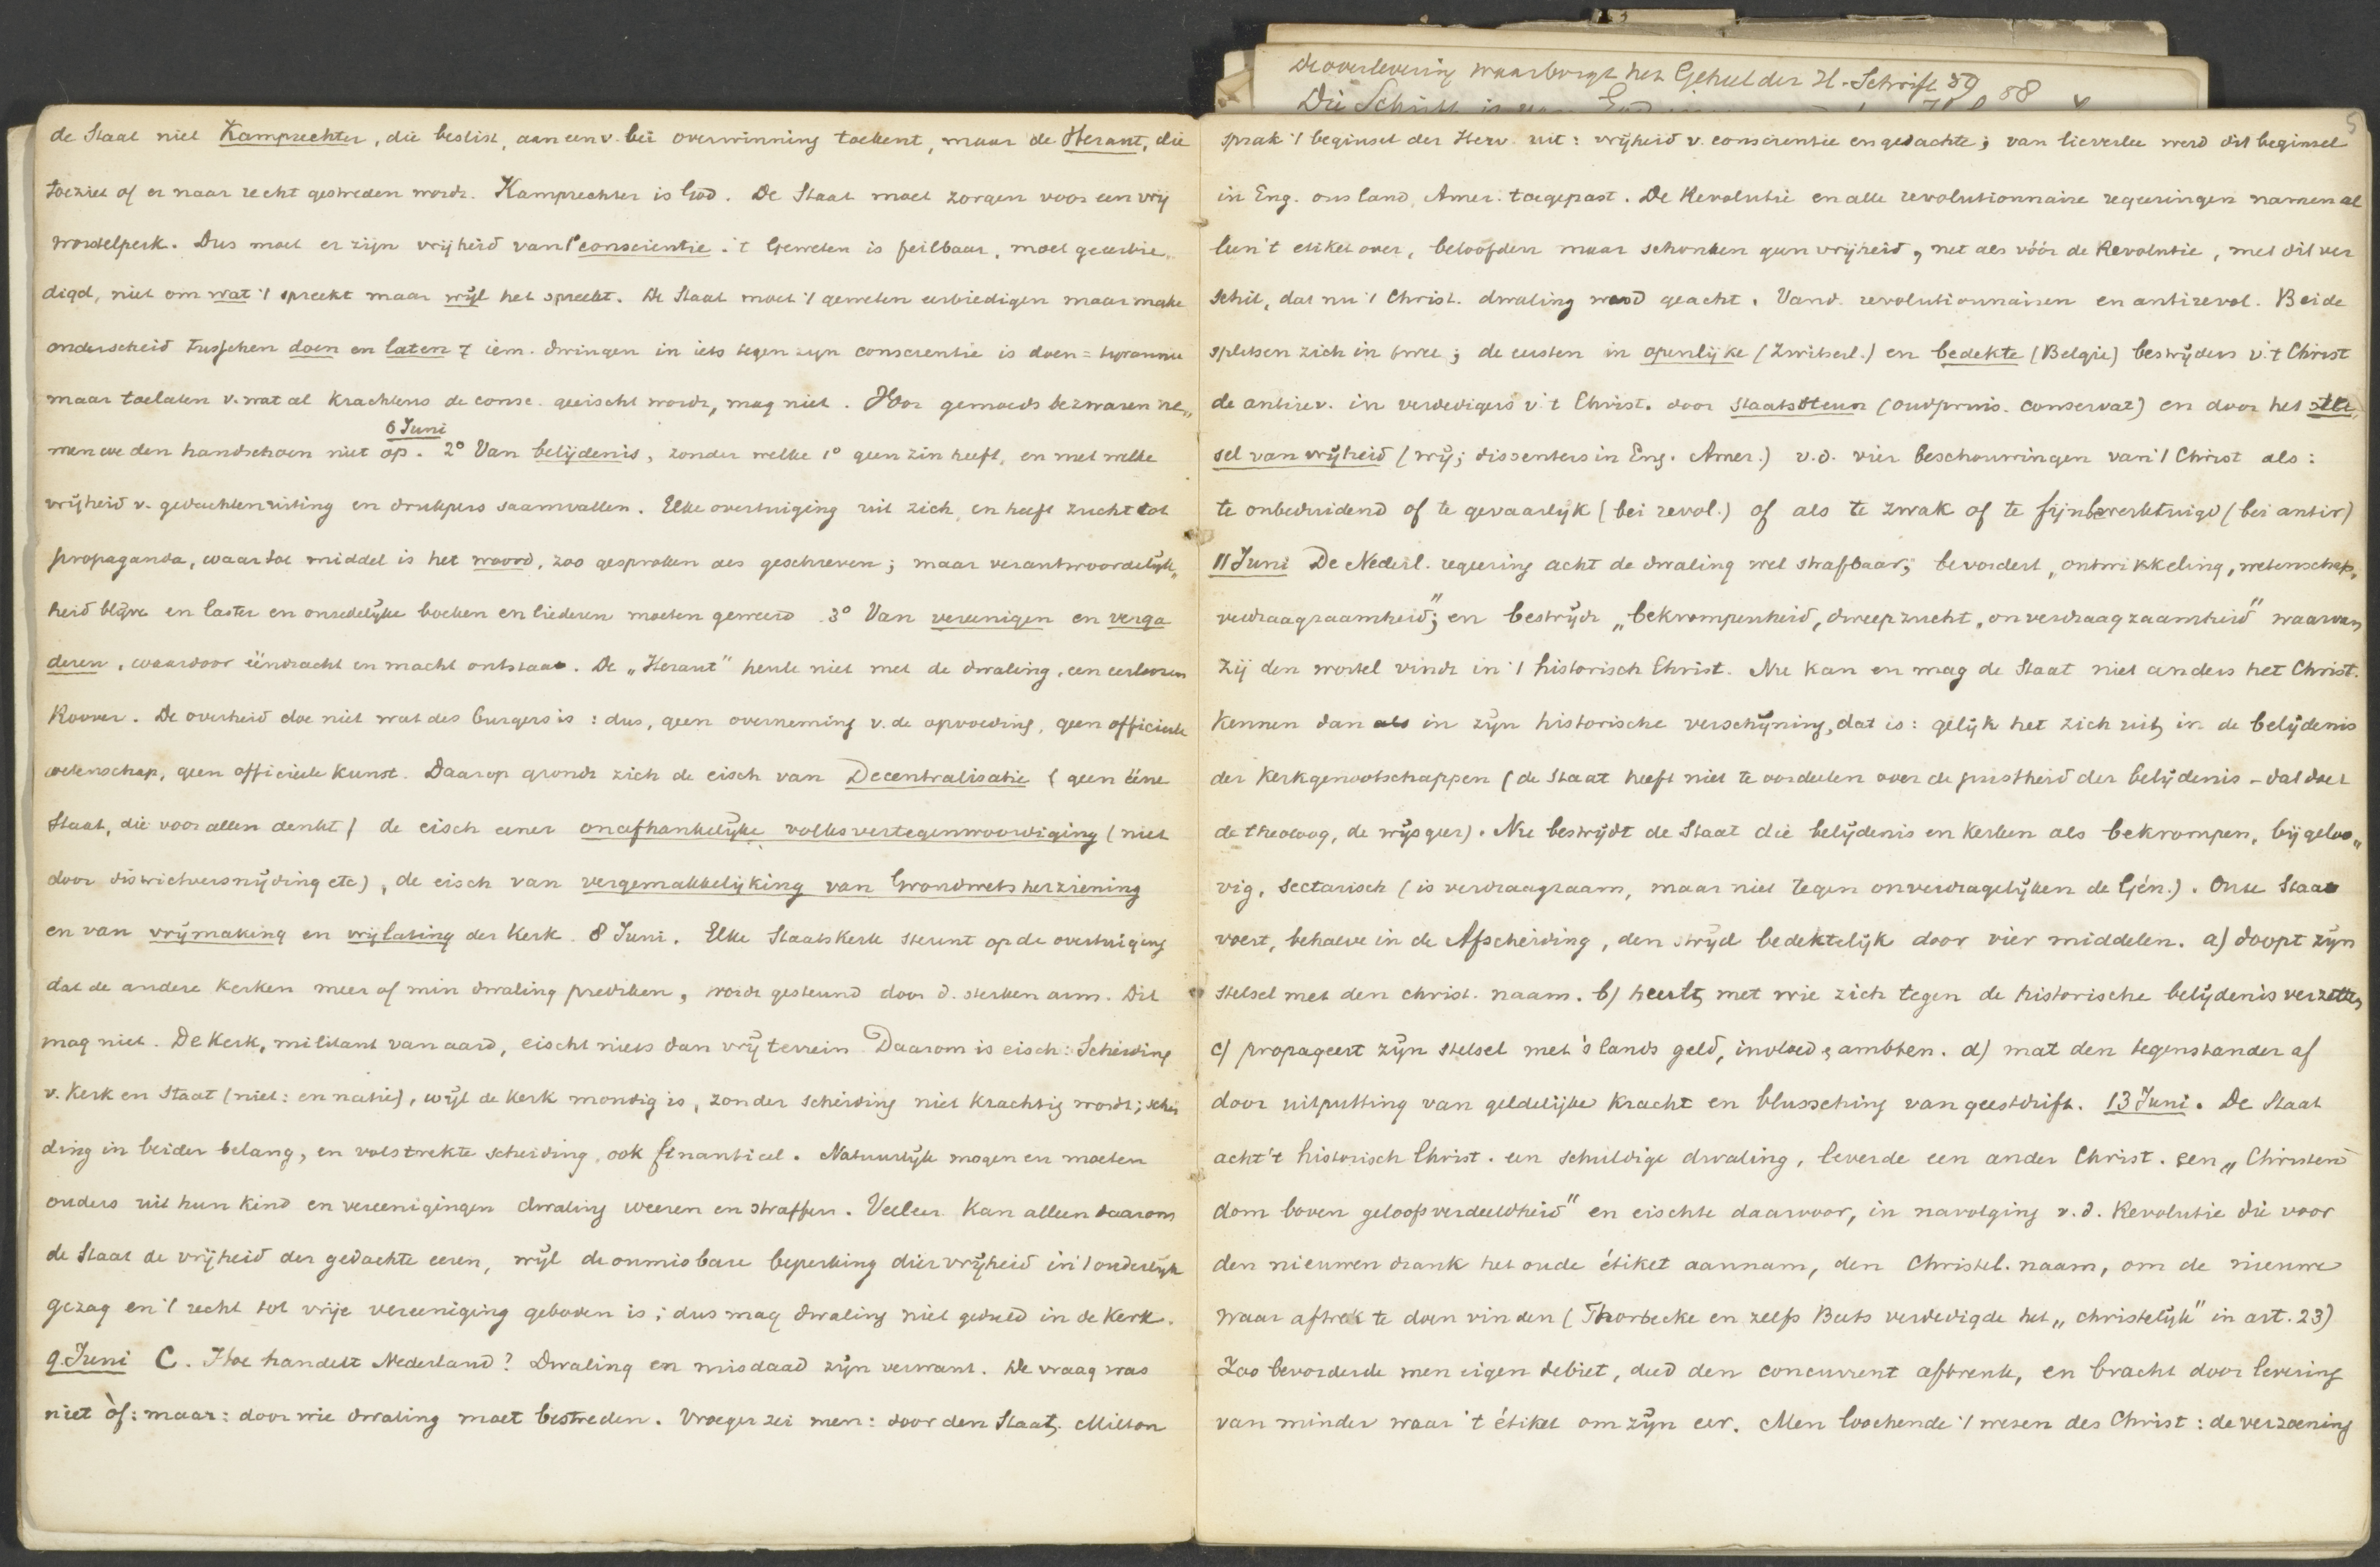 de overlevering waarborgt het Geheel der H. Schrift 89 88
de Staat niet Kamprechter, die beslist, aan een v. bei overwinning toekent, maar de Heraut, die
toeziet of er naar recht gestreden wordt. Kamprechter is God. De Staat moet zorgen voor een vrij
worstelperk. Dus moet er zijn vrijheid van 1° conscientie. 't Geweten is feilbaar, moet geëerbie„
digd, niet om wat 't spreekt maar wijl het spreekt. De Staat moet 't geweten eerbiedigen maar make
onderscheid tusschen doen en laten iem. dwingen in iets tegen zijn conscientie is doen = tyrannie
maar toelaten v. wat al krachtens de consc. geëischt wordt, mag niet. Voor gemoedsbezwaren ne„
6 Juni
men we den handschoen niet op. 2° Van belijdenis, zonder welke 1° geen zin heeft, en met welke
vrijheid v. gedachtenuiting en drukpers saamvallen. Elke overtuiging uit zich, en heeft zucht tot
propaganda, waartoe middel is het woord, zoo gesproken als geschreven; maar verantwoordelijk„
heid blijve en laster en onzedelijke boeken en liederen moeten geweerd. 3° Van vereenigen en verga
deren, waardoor eendracht en macht ontstaat. De „Heraut" heule niet met de dwaling, een eerloozen
Roover. De overheid doe niet wat des burgers is: dus, geen overneming v. de opvoeding, geen officieele
wetenschap, geen officieele kunst. Daarop grondt zich de eisch van Decentralisatie (geen ééne
Staat, die voor allen denkt) de eisch eener onafhankelijke volksvertegenwoordiging (niet
door districtversnijding etc), de eisch van vergemakkelijking van Grondwetsherziening
en van vrijmaking en vrijlating der Kerk. 8 Juni. Elke Staatskerk steunt op de overtuiging
dat de andere Kerken meer of min dwaling prediken, wordt gesteund door d. sterken arm. Dit
mag niet. De Kerk, militant van aard, eischt niets dan vrij terrein. Daarom is eisch: Scheiding
v. Kerk en Staat (niet: en natie), wijl de Kerk mondig is, zonder scheiding niet krachtig wordt; schei
ding in beider belang, en volstrekte scheiding, ook finantieel. Natuurlijk mogen en moeten
ouders uit hun kind en vereenigingen dwaling weeren en straffen. Veeleer kan alleen daarom
de Staat de vrijheid der gedachte eeren, wijl de onmisbare beperking dier vrijheid in 't ouderlijk
gezag en 't recht tot vrije vereeniging geboden is; dus mag dwaling niet geduld in de Kerk.
9 Juni C. Hoe handelt Nederland? Dwaling en misdaad zijn verwant. De vraag was
niet òf: maar: door wie dwaling moet bestreden. Vroeger zei men: door den Staat. Milton
5
sprak 't beginsel der Herv. uit: vrijheid v. conscientie en gedachte; van lieverlee werd dit beginsel
in Eng. ons land, Amer. toegepast. De Revolutie en alle revolutionnaire regeeringen namen al
leen 't etiket over, beloofden maar schonken geen vrijheid, net als vóór de Revolutie, met dit ver
schil, dat nu 't Christ. dwaling werd geacht. Vand. revolutionnairen en antirevol. Beide
splitsen zich in twee; de eersten in openlijke (Zwitserl.) en bedekte (België) bestrijders v. 't Christ
de antirev. in verdedigers v. 't Christ. door staatssteun (oudpruis. conservat) en door het stel
sel van vrijheid (wij; dissenters in Eng. Amer.) v.d. vier beschouwingen van 't Christ als:
te onbeduidend of te gevaarlijk (bei revol.) of als te zwak of te fijnbewerktuigd (bei antir)
11 Juni De Nederl. regeering acht de dwaling wel strafbaar; bevordert „ontwikkeling, wetenschap,
verdraagzaamheid"; en bestrijdt „bekrompenheid, dweepzucht, onverdraagzaamheid" waarvan
zij den wortel vindt in 't historisch Christ. Nu kan en mag de Staat niet anders het Christ.
kennen dan als in zijn historische verschijning, dat is: gelijk het zich uit in de belijdenis
der Kerkgenootschappen (de Staat heeft niet te oordeelen over de juistheid der belijdenis – dat doet
de theoloog, de wijsgeer). Nu bestrijdt de Staat die belijdenis en kerken als bekrompen, bijgeloo„
vig, sectarisch (is verdraagzaam, maar niet tegen onverdragelijken de Gén.). Onze Staat
voert, behalve in de Afscheiding, den strijd bedektelijk door vier middelen. a) doopt zijn
stelsel met den christ. naam. b) heult met wie zich tegen de historische belijdenis verzetten
c) propageert zijn stelsel met 's lands geld, invloed, ambten. d) mat den tegenstander af
door uitputting van geldelijke kracht en blussching van geestdrift. 13 Juni. De Staat
acht 't historisch Christ. een schuldige dwaling, leverde een ander Christ. een „Christen
dom boven geloofsverdeeldheid" en eischte daarvoor, in navolging v.d. Revolutie die voor
den nieuwen drank het oude étiket aannam, den Christel. naam, om de nieuwe
waar aftrek te doen vinden (Thorbecke en zelfs Beets verdedigde het „christelijk" in art. 23)
Zoo bevorderde men eigen debiet, deed den concurrent afbreuk, en bracht door levering
van minder waar 't étiket om zijn eer. Men loochende 't wezen des Christ: de verzoening